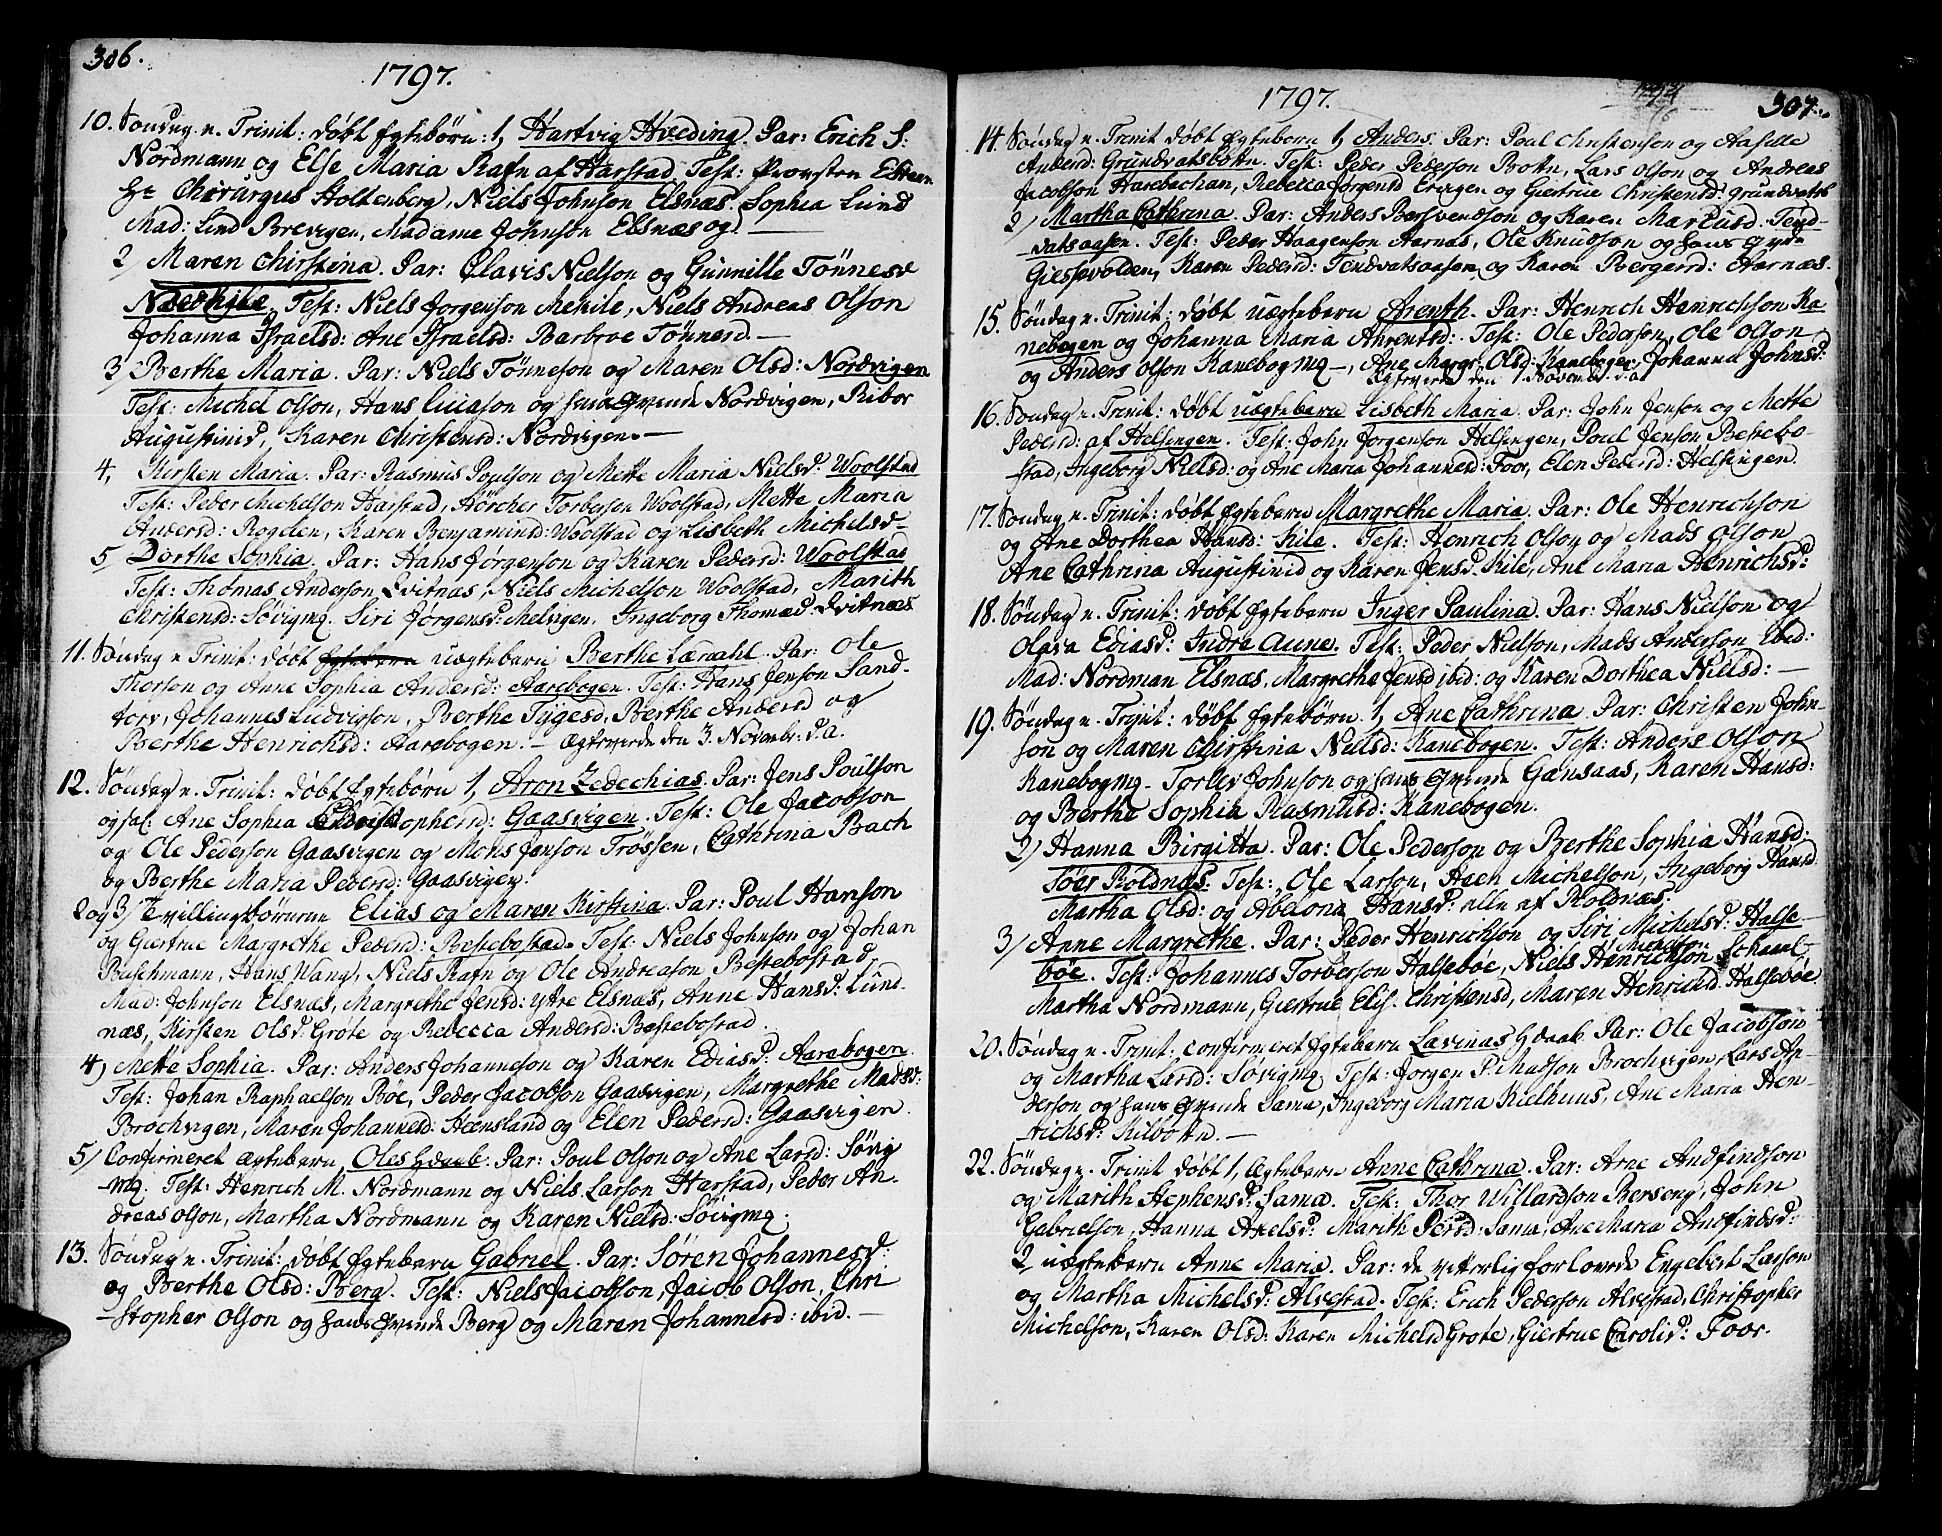 306.
1797.
10. Søndag n. Trinit: døbt Egtebørn: 1, Hartvig Hveding. Par: Erich S:
Nordmann og Else Maria Rafn af Harstad. Test: Provsten
Hr Chirurgus Holtenberg, Niels Johnson Elsnæs. Sophia Lund
Mad: Lind Brevigen, Madame Johnson Elsnæs og
2/ Maren Chirstina. Par: Clavis Nielson og Gunnille Tönnesd
Test: Niels Jorgenson Mehile, Niels Andreas Olson
Johanna Israelsd: Ane Israelsd: Barbroe Tönnesd. —
3/ Berthe Maria. Par: Niels Tönneson og Maren Olsd: Nordvigen
Test: Michel Olson, Hans Lucason og hans Qvinde Nordvigen, Ribor
Augustinid, Karen Christensd: Nordvigen. —
4, Kirsten Maria. Par: Rasmus Poulson og Mette Maria Nielsd: Woolstad
Test: Peder Michelson Harstad, Hörcher Torberson Woolstad, Mette Maria
Andersd: Rogden, Karen Benjamind: Woolstad og Lisbeth Michelsd-
5 Dorthe Sophia. Par: Hans Jørgenson og Karen Pedersd: Woolstad
Test: Thomas Anderson Qvitnæs, Niels Michelson Woolstad, Marith
Christensd: Søvigmg. Siri Jørgensd: Melvigen, Ingeborg Thomæd: Qvitnæs
11. Søndag n Trinit: døbt Egtebarn uægtebarn Berthe Lærdahl. Par: Ole
Thorson og Anne Sophia Andersd: Aarebogen. Test: Hans Jenson Sand-
torv, Johannes Ludvigson, Berthe Tygesd, Berthe Andersd og
Berthe Henrichsd: Aarebogen. — Ægtevviede den 3. Novembr. d.a.
12. Søndag n. Trinit: døbt Egtebørn 1, Aron Zedechias. Par: Jens Poulson
og Ane Sophia Christophersd: Gaasvigen. Test: Ole Jacobson
og Ole Pederson Gaasvigen og Mons Jenson Trössen, Cathrina Bach
og Berthe Maria Pedersd: Gaasvigen.
2 og 3/ Tvillingbørnene Elias og Maren Kirstina. Par: Poul Hanson
og Giertrue Margrethe Pedersd: Bestebostad. Test: Niels Johnson og Johan
Buschmann, Hans Wang, Niels Rafn og Ole Andreason Bestebostad,
Mad: Johnson Elsnæs, Margrethe Jensd: ytre Elsnæs, Anne Hansd: Lund-
næs, Kirsten Olsd: Grøte og Rebecca Andersd: Bestebostad.
4, Mette Sophia. Par: Anders Johanneson og Karen Ediasd: Aarebogen.
Test: Johan Raphaelson Bøe, Peder Jacobson Gaasvigen, Margrethe Madsd:
Brochvigen, Maren Johannesd: Hemsland og Elen Pedersd: Gaasvigen.
5/ Confirmeret ægtebarn, Oles Hdaab. Par: Poul Olson og Ane Larsd: Søvig
mg. Test: Henrich M. Nordmann og Niels Larson Harstad, Peder An-
dreas Olson, Martha Nordmann og Karen Nielsd: Søvigmg.
13. Søndag n. Trinit: døbt Egtebarn Gabriel. Par: Søren Johannesd:
og Berthe Olsd: Berg. Test: Niels Jacobson, Jacob Olson, Chri
stopher Olson og hans Qvinde Berg og Maren Johannesd: ibid. —
307.
1797.
14. Søndag n. Trinit døbt Egtebarn 1, Anders. Par: Poul Christenson og Aaselle
Andersd: Grundvatsbotn. Test: Peder Pederson Botn, Lars Olson og Andreas
Jacobson Harebachan, Rebecca Jørgensd Ervigen og Giertrue Christensd: Grundvatsb
2/ Martha Cathrina. Par: Anders Bersvendson og Karen Martusd. Tend-
vatsaasen. Test: Peder Haagenson Aarnæs, Ole Knudson og hans Qvde
Giessevolden, Karen Pedersd: Tendvatsaasen og Karen Bergersd: Aarnæs.
15. Søndag n. Trinit: døbt uægtebarn Arenth. Par: Henrich Henrichson Ka
nebogen og Johanna Maria Ahrentsd: Test: Ole Pederson, Ole Olson
og Anders Olson Kanebogmg —, Ane Margr: Olsd: Kanebogen, Johanna Johnsd:
Egteviede den 1 Novembr. d.a.
16. Søndag n Trinit: døbt uægtebarn Lisbeth Maria. Par: John Jenson og Mette
Pedersd: af Helsingen. Test: John Jorgenson Helsingen, Poul Jenson Bestebo-
stad, Ingeborg Nielsd: og Ane Maria Johannesd: Foor, Elen Pedersd: Helsingen.
17. Søndag n. Trinit: døbt Egtebarn Margrethe Maria. Par: Ole Henrichson
og Ane Dorthea Hansd: Kile. Test: Henrich Olson og Mads Olson
Ane Cathrina Augustinid og Karen Jensd. Kile, Ane Maria Henrichsd:
18. Søndag n. Trinit: døbt Egtebarn Inger Paulina. Par: Hans Nielson og
Olava Ediasd: Indre Aune. Test: Peder Nielson, Mads Anderson ibid:
Mad: Nordman Elsnæs, Margrethe Jensd ibid: og Karen Dorthea Nielsd: —
19. Søndag n. Trinit: døbt Egtebørn. 1, Ane Cathrina. Par: Christen John-
son og Maren Chirstina Nielsd: Kanebogen. Test: Anders Olson
Kanebogmg. Torlev Johnson og hans Qvinde Gansaas, Karen Hansd:
og Berthe Sophia Rasmusd: Kanebogen.
2) Hanna Birgitta. Par: Ole Pederson og Berthe Sophia Hansd:
Søer Roldnæs. Test: Ole Larson, Heen Michelson, Ingeborg Hansd.
Martha Olsd: og Abelona Hansd: alle af Roldnæs.
3) Anne Margrethe. Par: Peder Henrichson og Siri Michelsd: Halse-
bøe. Test: Johannes Torberson Halsebøe, Niels Henrichson Michelson
Martha Nordmann, Giertrue Elis. Christensd, Maren Henrichsd. Halsebøe
20. Søndag n. Trinit: confirmeret Egtebarn Lavinas Hdaab. Par: Ole Jacobson
og Martha Larsd: Søvigmg. Test: Jorgen P. Madson Brochvigen, Lars An-
derson og hans Qvinde Sama, Ingeborg Maria Kielhuus, Ane Maria Hen-
richsd: Kilbotn. —
22. Søndag n. Trinit døbt 1, ægtebarn Anne Cathrina. Par: Arne Andfindson
og Marith Stephensd: Sama. Test: Thor Willardson Berseng, John
Gabrielson, Hanna Axelsd: Marith Persd: Sama, Ane Maria Andfindsd:
2/ uægtebarn Anne Maria. Par: de vitterlig forlovede Engebret Larson
og Martha Michelsd: Alvestad. Test: Erich Pederson Alvestad, Christopher
Michelson, Karen Olsd: Karen Michelsd Grøte, Giertrue Carolisd: Foor.